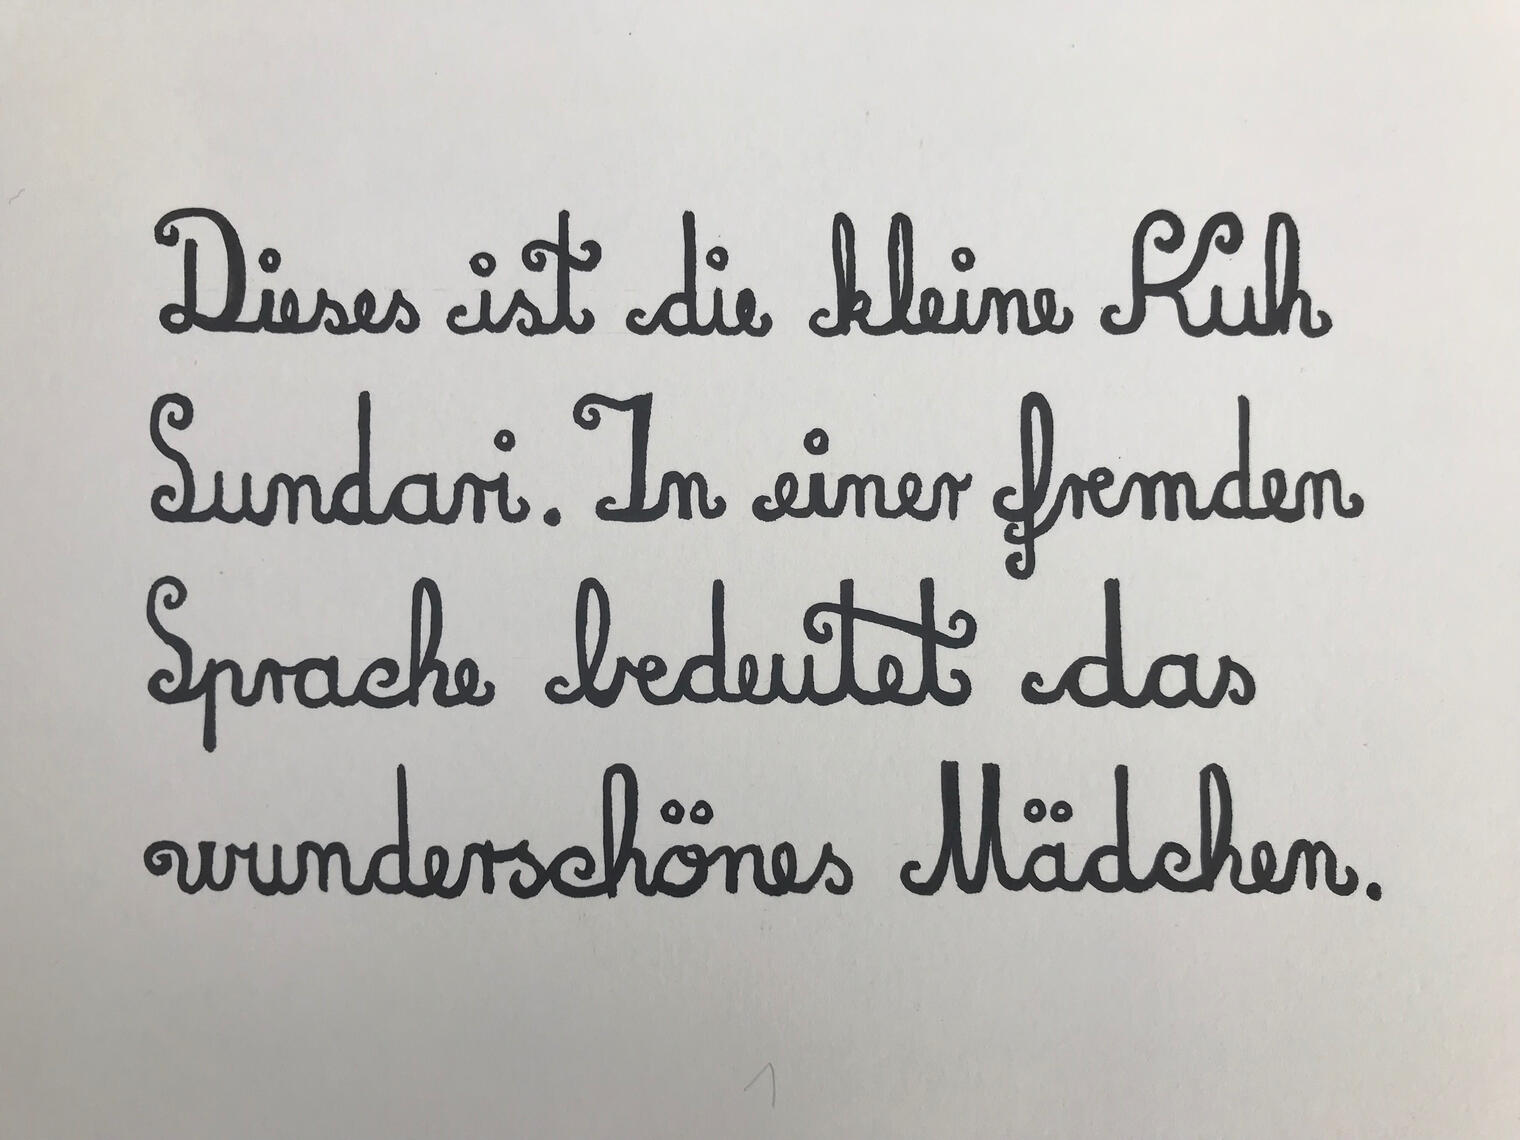 Dieses ist die kleine Kuh
Sundari. In einer fremden
Sprache bedeutet das
wunderschönes Mädchen.
1